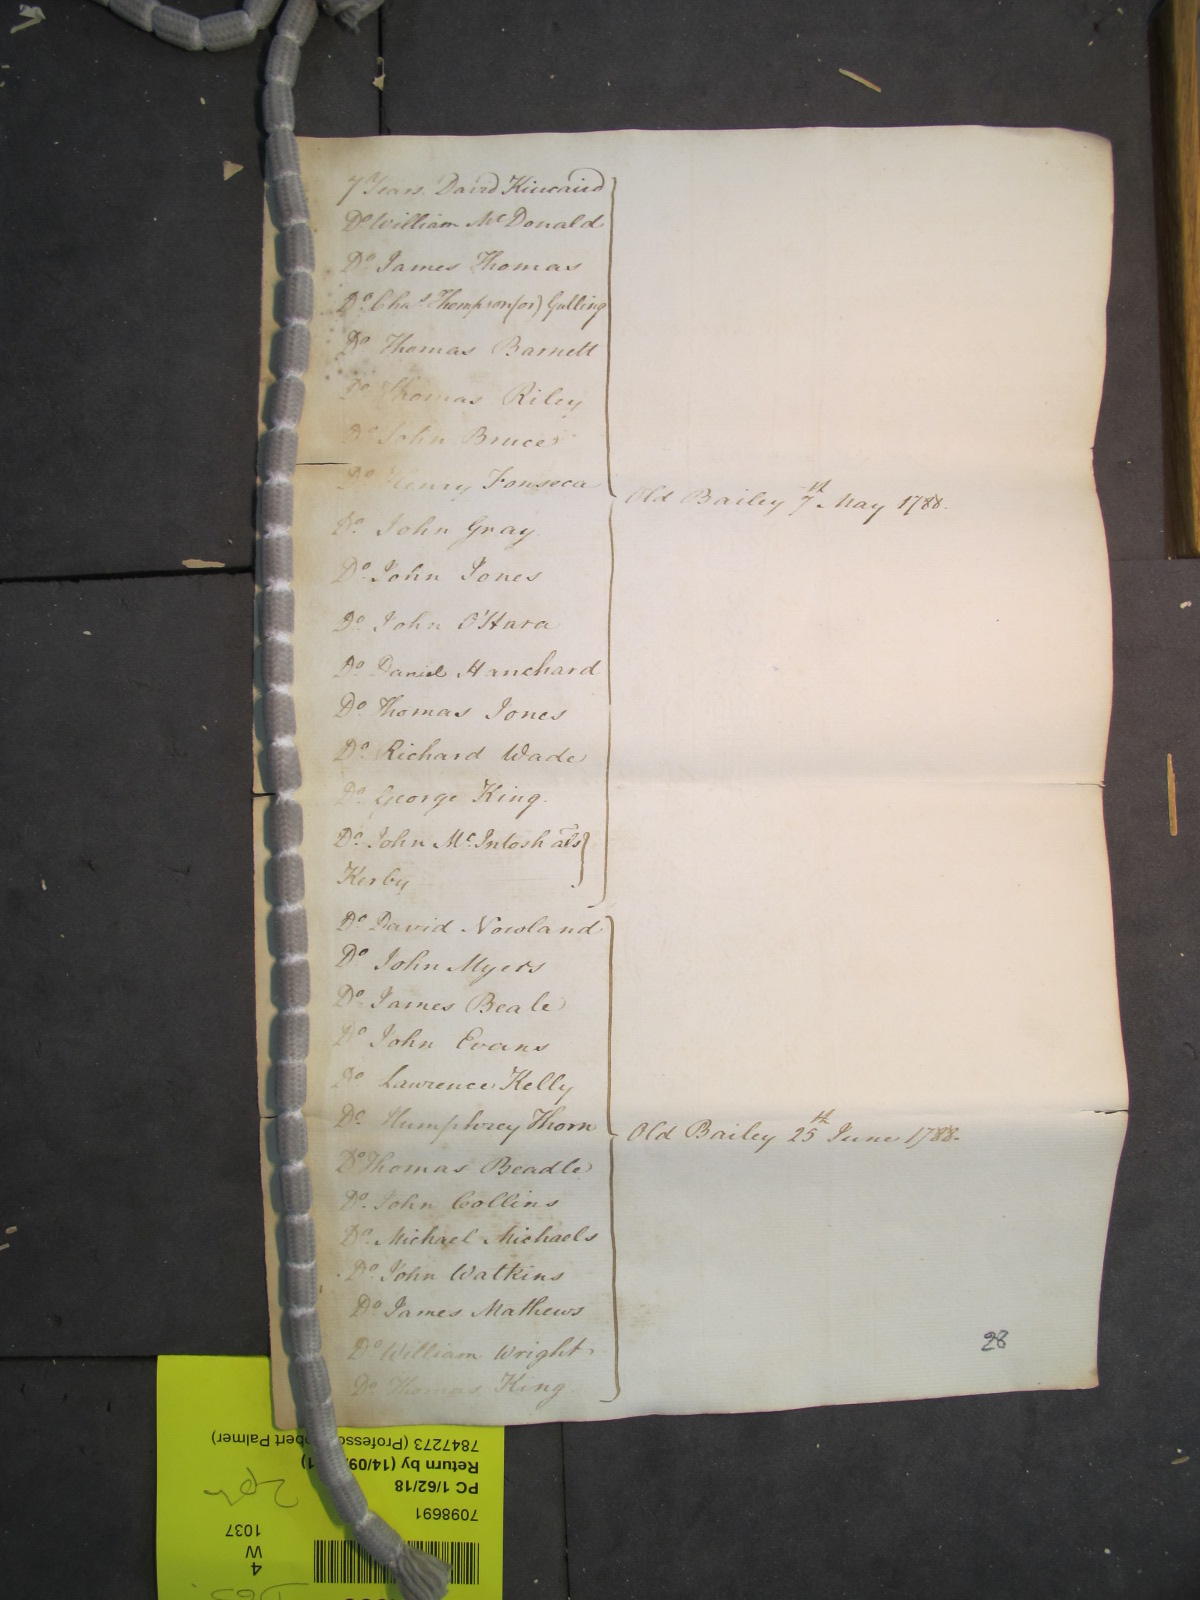 7 Years David Kincaird
Do William McDonald
Do James Thomas
Do Chas Thompson (or) Gulling
Do Thomas Barnett
Do Thomas Riley
Do John Bruce
Do Henry Fonseca
Old Bailey 7th May 1788.
Do John Gray
Do John Jones
Do John O'Hara
Do Daniel Hanchard
Do Thomas Jones
Do Richard Wade
Do George King.
Do John McIntosh als
Kerby
Do David Nowland
Do John Myers
Do James Beale
Do John Evans
Do Lawrence Kelly
Do Humphrey Thorn
Old Bailey 25th June 1788.
Do Thomas Beadle
Do John Collins
Do Michael Michaels
Do John Watkins
Do James Mathews
Do William Wright
Do Thomas King
28
7098691
PC 1/62/18
Return by (14/09/
7847273 (Professo bert Palmer)
4
W
1037